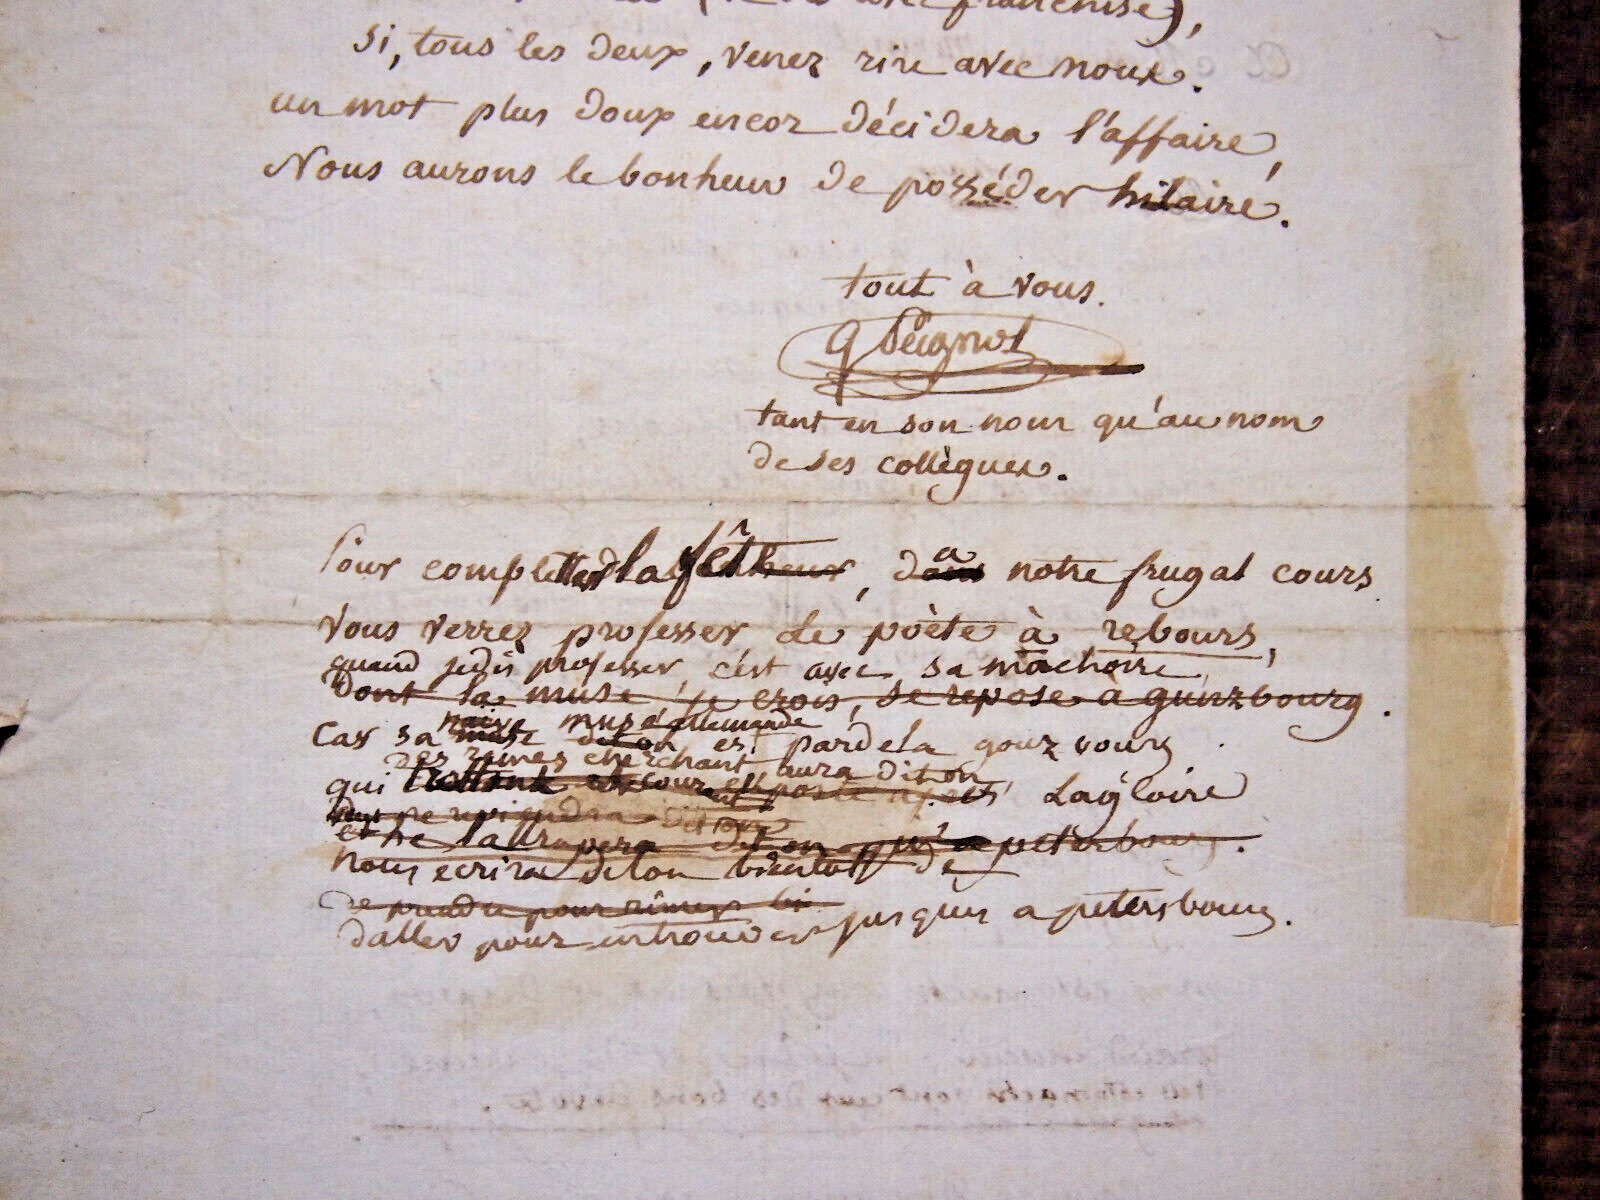 franchise),
si, tous les deux, venez rire avec nous.
un mot plus doux encor décidera l'affaire,
Nous aurons le bonheur de posséder hilaire.
tout à vous.
G Peignot
tant en son nom qu'au nom
de ses collègues.
Pour completter la fête, da
notre frugal cours
Vous verrez professer le poëte à rebours,
quand jedis professer, c'est avec sa machoire
Dont la muse, je crois, se repose a gunzbourg.
naive muse allemande
Car sa dit on est pardela gonzbourg
des rimes cherchant aura dit on
qui la gloire
et ne l'attrapera dit on qu'a petersbourg.
nous ecrira dit on bientott de
de prendre pour rimer
daller pour en trouver jusques a petersbourg.